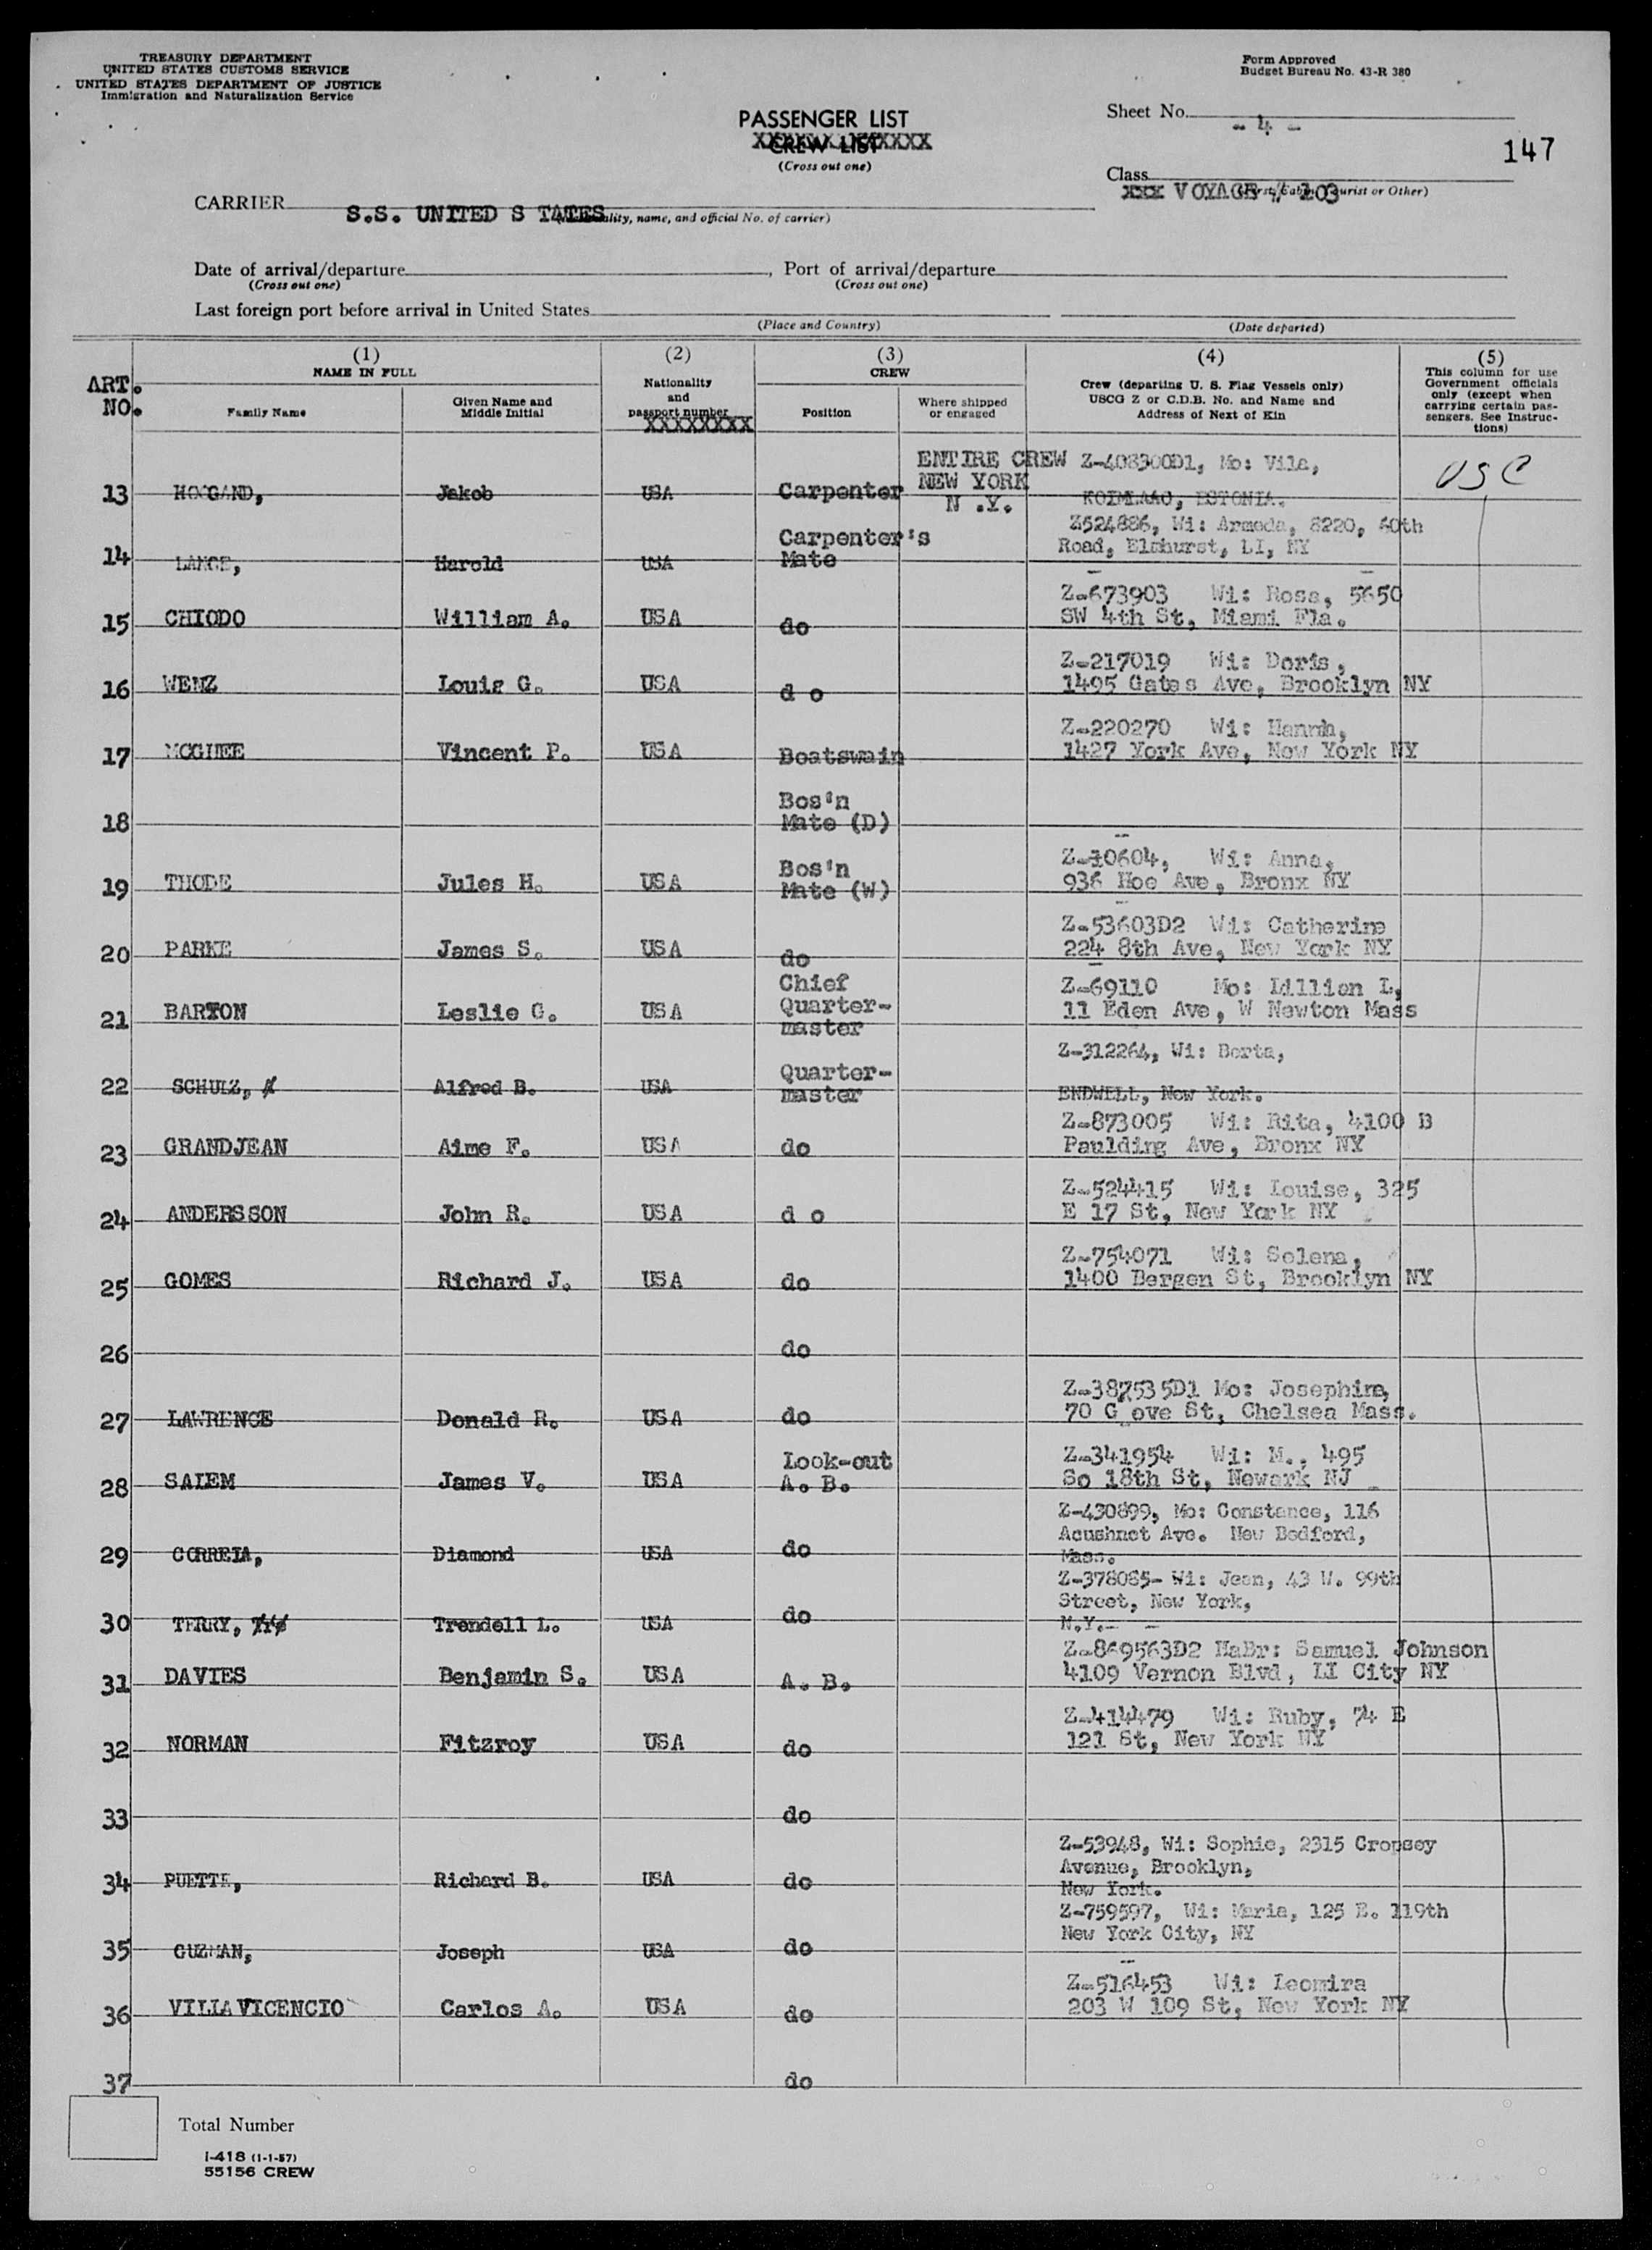 TREASURY DEPARTMENT
UNITED STATES CUSTOMS SERVICE
UNITED STATES DEPARTMENT OF JUSTICE
Immigration and Naturalization Service
Form Approved
Budget Bureau No. 43-R 380
PASSENGER LIST
CREW LIST
(Cross out one)
Sheet No. - 4 -
147
Class
XXX VOYAGE # 103
CARRIER S.S. UNITED S TATES
name, and official No. of carrier)
Date of arrival/departure , Port of arrival/departure
(Cross out one) (Cross out one)
Last foreign port before arrival in United States
(Place and Country) (Date departed)
(1) (2) (3) (4) (5)
NAME IN FULL Nationality and passport number CREW Crew (departing U. S. Flag Vessels only) USCG Z or C.D.B. No. and Name and Address of Next of Kin This column for use Government officials only (except when carrying certain passengers. See Instructions)
ART. NO. Family Name Given Name and Middle Initial Position Where shipped or engaged
ENTIRE CREW NEW YORK N .Y.
13 Jakob USA Carpenter Z-408300D1, Mo: Vila, ESTONIA. USC
14 LANGE, Harold USA Carpenter's Mate Z524886, Wi: Armeda, 8220, 60th Road, Elmhurst, LI, NY
15 CHIODO William A. USA do Z-673903 Wi: Rose, 5650 SW 4th St, Miami Fla.
16 WENZ Louis G. USA d o Z-217019 Wi: Doris, 1495 Gates Ave, Brooklyn NY
17 MCGHEE Vincent P. USA Boatswain Z-220270 Wi: Hannah, 1427 York Ave, New York NY
18 Bos'n Mate (D)
19 THODE Jules H. USA Bos'n Mate (W) Z-10604, Wi: Anna, 936 Hoe Ave, Bronx NY
20 PARKE James S. USA do Z-53603D2 Wi: Catherine 224 8th Ave, New York NY
21 BARTON Leslie G. USA Chief Quarter-master Z-69110 Mo: Lillian L, 11 Eden Ave, W Newton Mass
22 SCHULZ, Alfred B. USA Quarter-master Z-312264, Wi: Berta, ENDWELL, New York.
23 GRANDJEAN Aime F. USA do Z-873005 Wi: Rita, 4100 B Paulding Ave, Bronx NY
24 ANDERSSON John R. USA d o Z-524415 Wi: Louise, 325 E 17 St, New York NY
25 GOMES Richard J. USA do Z-754071 Wi: Selena, 1400 Bergen St, Brooklyn NY
26 do
27 LAWRENCE Donald R. USA do Z-387535D1 Mo: Josephine, 70 G ove St, Chelsea Mass.
28 SALEM James V. USA Look-out A. B. Z-341954 Wi: M., 495 So 18th St, Newark NJ
29 CORREIA, Diamond USA do Z-430899, Mo: Constance, 116 Acushnet Ave. New Bedford, Mass.
30 TERRY, Trendell L. USA do Z-378085- Wi: Jean, 43 W. 99th Street, New York, N.Y.
31 DAVIES Benjamin S. USA A. B. Z-869563D2 HaBr: Samuel Johnson 4109 Vernon Blvd, LI City NY
32 NORMAN Fitzroy USA do Z-414479 Wi: Ruby, 74 E 121 St, New York NY
33 do
34 PUETTE, Richard B. USA do Z-53948, Wi: Sophie, 2315 Cropsey Avenue, Brooklyn, New York.
35 GUZMAN, Joseph USA do Z-759597, Wi: Maria, 125 E. 119th New York City, NY
36 VILLAVICENCIO Carlos A. USA do Z-516453 Wi: Leomira 203 W 109 St, New York NY
37 do
Total Number
I-418 (1-1-57)
55156 CREW